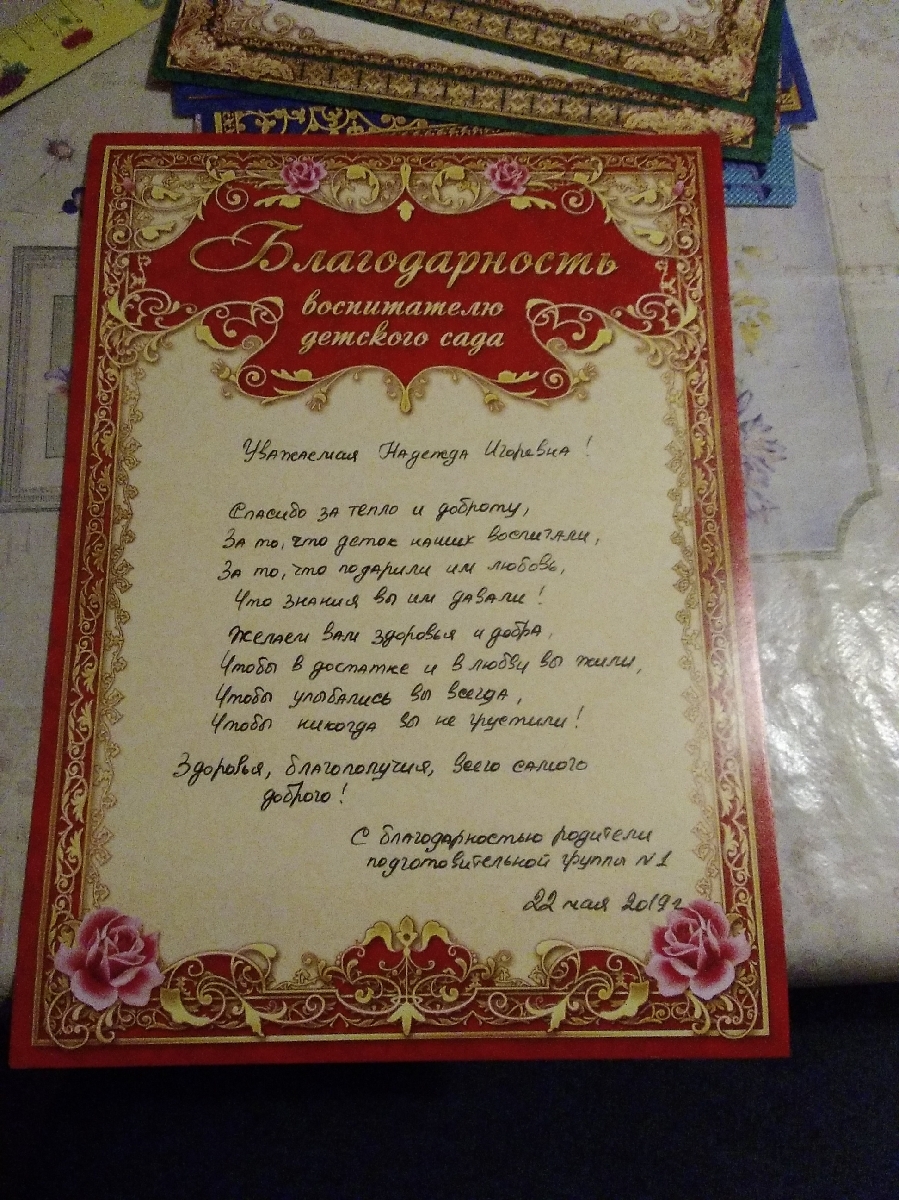 Благодарность
воспитателю
детского сада
Уважаемая Надежда Игоревна!
Спасибо за тепло и доброту,
За то, что деток наших воспитали,
За то, что подарили им любовь,
Что знания вы им давали!
Желаем вам здоровья и добра,
Чтобы в достатке и в любви вы жили,
Чтобы улыбались вы всегда,
Чтобы никогда вы не грустили!
Здоровья, благополучия, всего самого
доброго!
С благодарностью родители
подготовительной группы №1
22 мая 2019г